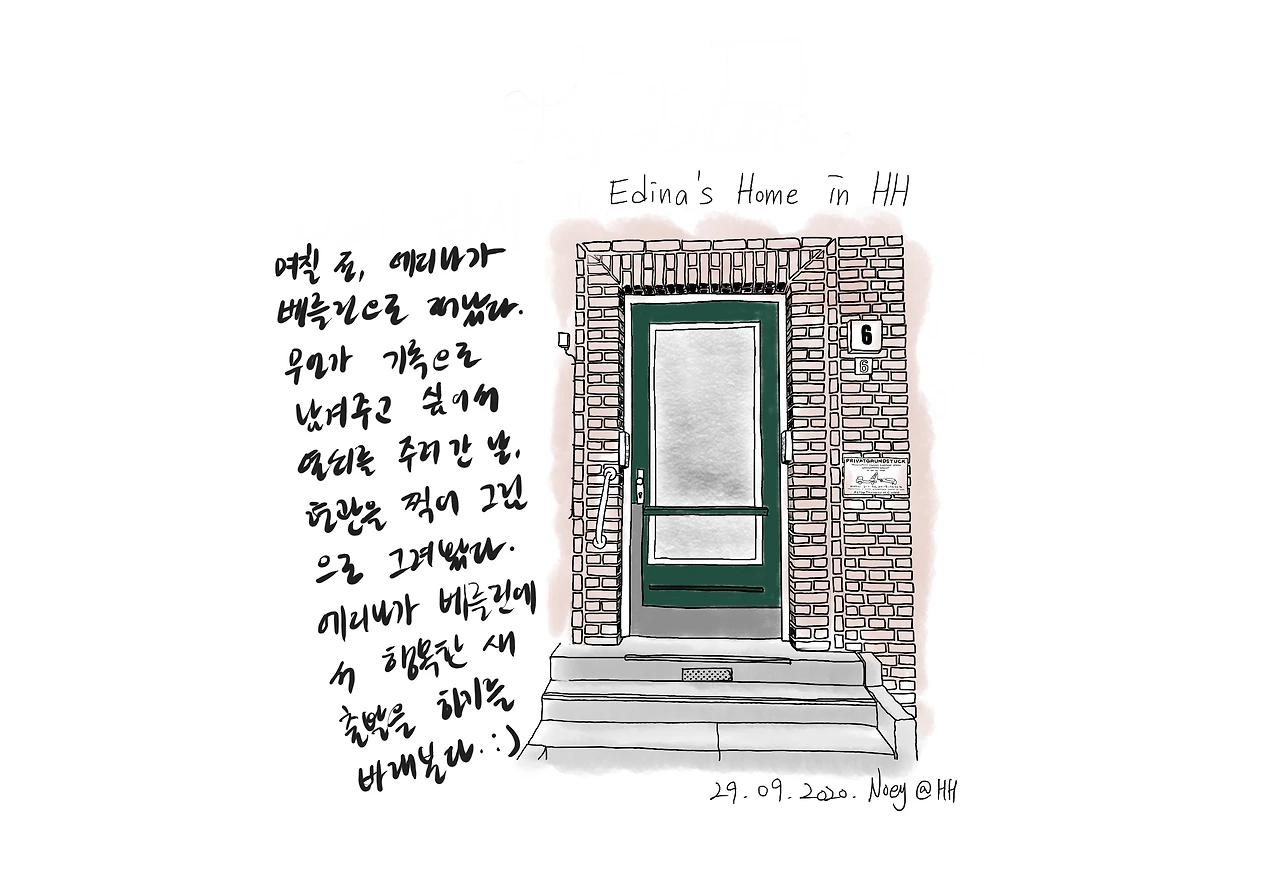 Edina's Home in HH
며칠 전, 에디나가
베를린으로 떠났다.
무언가 기록으로
남겨주고 싶어서
열쇠를 주러 간 날,
현관을 찍어 그림
으로 그려봤다.
에디나가 베를린에
서 행복한 새
출발을 하기를
바래본다. :)
6
6
PRIVATGRUNDSTÜCK
29.09.2020. Noey @HH